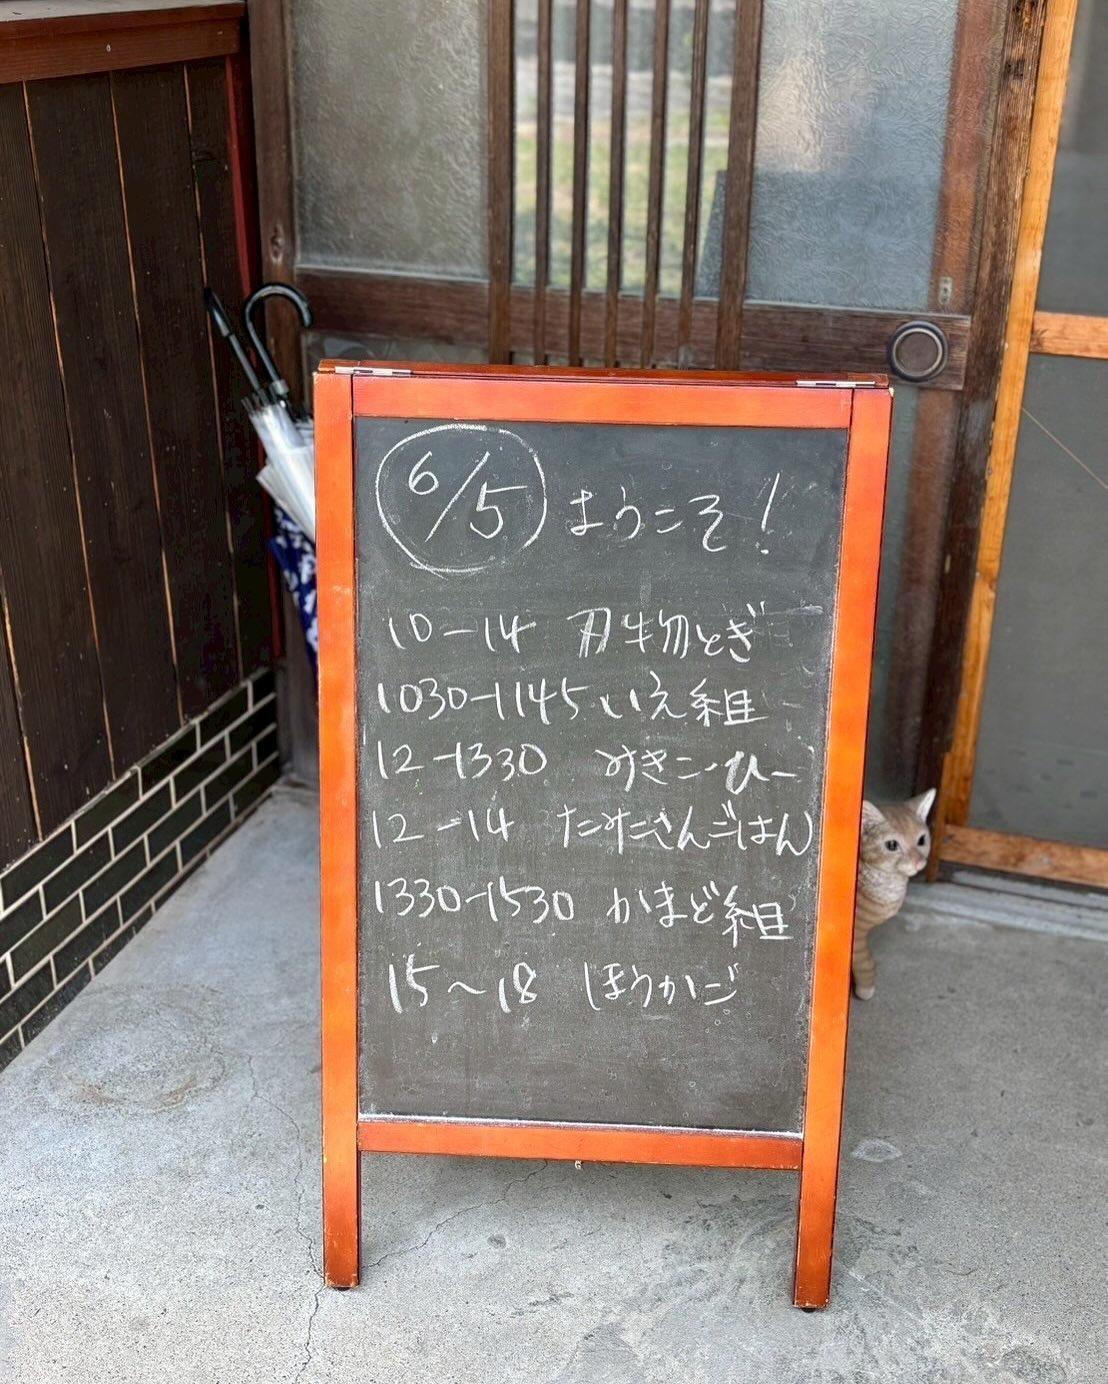 6/5 ようこそ!
10-14 刃物とぎ
1030-1145 いえ組
12-1330 みきこーひー
12-14 たみこさんごはん
1330-1530 かまど組
15~18 ほうかご